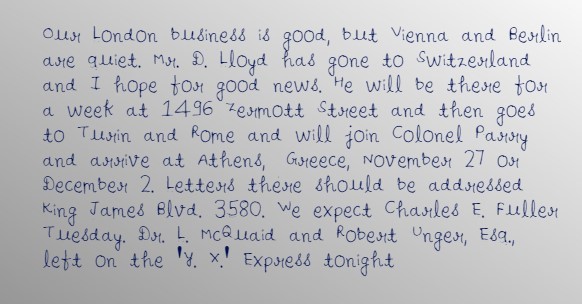 Our London business is good, but Vienna and Berlin
are quiet. Mr. D. Lloyd has gone to Switzerland
and I hope for good news. He will be there for
a week at 1496 Zermott Street and then goes
to Turin and Rome and will join Colonel Parry
and arrive at Athens, Greece, November 27 or
December 2. Letters there should be addressed
King James Blvd. 3580. We expect Charles E. Fuller
Tuesday. Dr. L. McQuaid and Robert Unger, Esq.,
left on the 'Y. X.' Express tonight